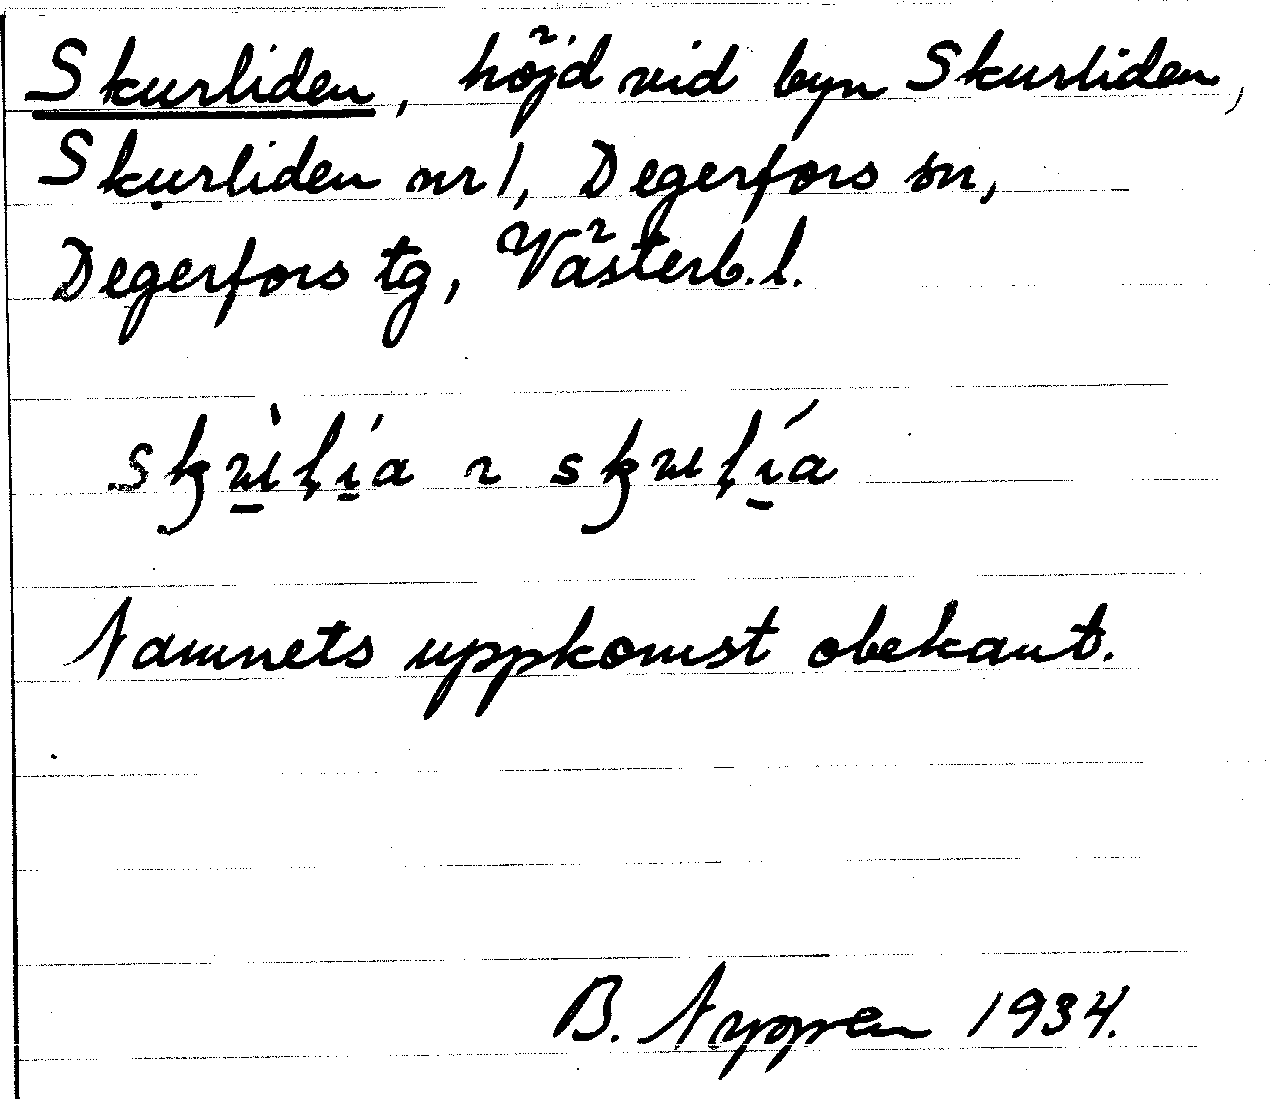 Skurliden, höjd vid byn Skurliden,
Skurliden nr 1, Degerfors sn,
Degerfors tg, Västerb. l.
Namnets uppkomst obekant.
B. Nyppen 1934.